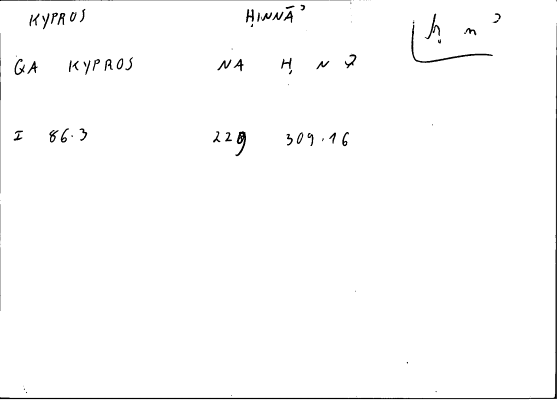 KYPROS ḤINNĀʾ ḥ n ʾ
QA KYPROS NA Ḥ N
I 86.3 229 309.16